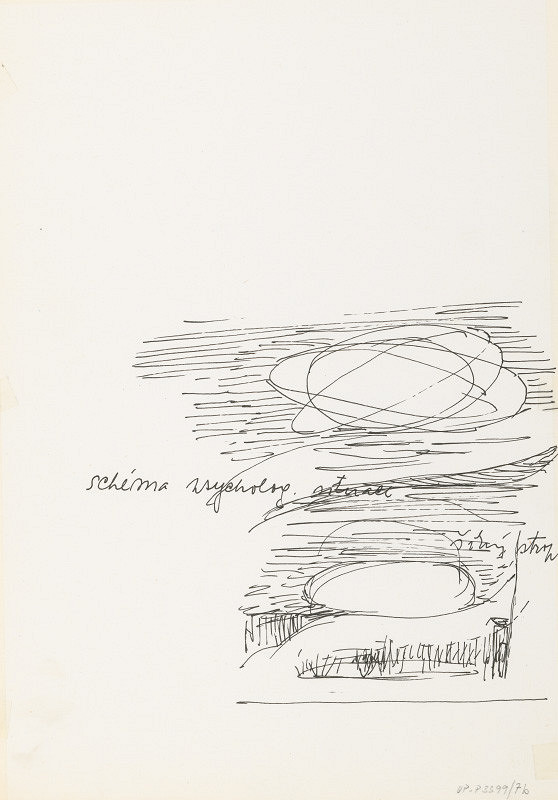 schéma psycholog. situací
strop
UP-P2299/7b